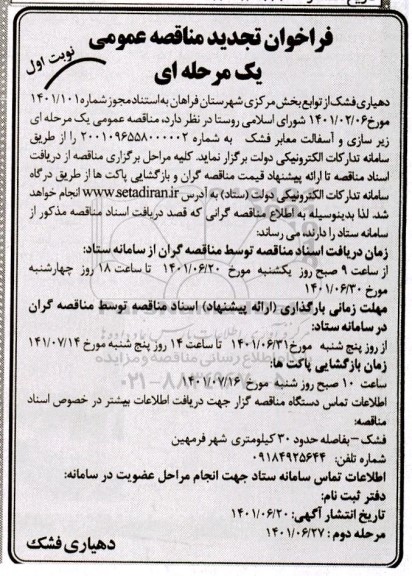 فراخوان تجدید مناقصه عمومی
یک مرحله ای
نوبت اول
دهیاری فشک از توابع بخش مرکزی شهرستان فراهان به استناد مجوز شماره ۱۴۰۱/۱۰۱
مورخ ۱۴۰۱/۰۲/۰۶ شورای اسلامی روستا در نظر دارد، مناقصه عمومی یک مرحله ای
زیر سازی و آسفالت معابر فشک به شماره ۲۰۰۱۰۹۶۵۵۸۰۰۰۰۰۲ را از طریق
سامانه تدارکات الکترونیکی دولت برگزار نماید. کلیه مراحل برگزاری مناقصه از دریافت
اسناد مناقصه تا ارائه پیشنهاد قیمت مناقصه گران و بازگشایی پاکت ها از طریق درگاه
سامانه تدارکات الکترونیکی دولت (ستاد) به آدرس www.setadiran.ir انجام خواهد
شد. لذا بدینوسیله به اطلاع مناقصه گرانی که قصد دریافت اسناد مناقصه مذکور از
سامانه ستاد را دارند، می رساند:
زمان دریافت اسناد مناقصه توسط مناقصه گران از سامانه ستاد:
از ساعت ۹ صبح روز یکشنبه مورخ ۱۴۰۱/۰۶/۲۰ تا ساعت ۱۸ روز چهارشنبه
مورخ ۱۴۰۱/۰۶/۳۰
مهلت زمانی بارگذاری (ارائه پیشنهاد) اسناد مناقصه توسط مناقصه گران
در سامانه ستاد:
از روز پنج شنبه مورخ ۱۴۰۱/۰۶/۳۱ تا ساعت ۱۴ روز پنج شنبه مورخ ۱۴۱/۰۷/۱۴
زمان بازگشایی پاکت ها:
ساعت ۱۰ صبح روز شنبه مورخ ۱۴۰۱/۰۷/۱۶
اطلاعات تماس دستگاه مناقصه گزار جهت دریافت اطلاعات بیشتر در خصوص اسناد
مناقصه:
فشک - بفاصله حدود ۳۰ کیلومتری شهر فرمهین
شماره تلفن: ۰۹۱۸۴۹۲۵۶۴۴
اطلاعات تماس سامانه ستاد جهت انجام مراحل عضویت در سامانه:
دفتر ثبت نام:
تاریخ انتشار آگهی: ۱۴۰۱/۰۶/۲۰
مرحله دوم: ۱۴۰۱/۰۶/۲۷
دهیاری فشک